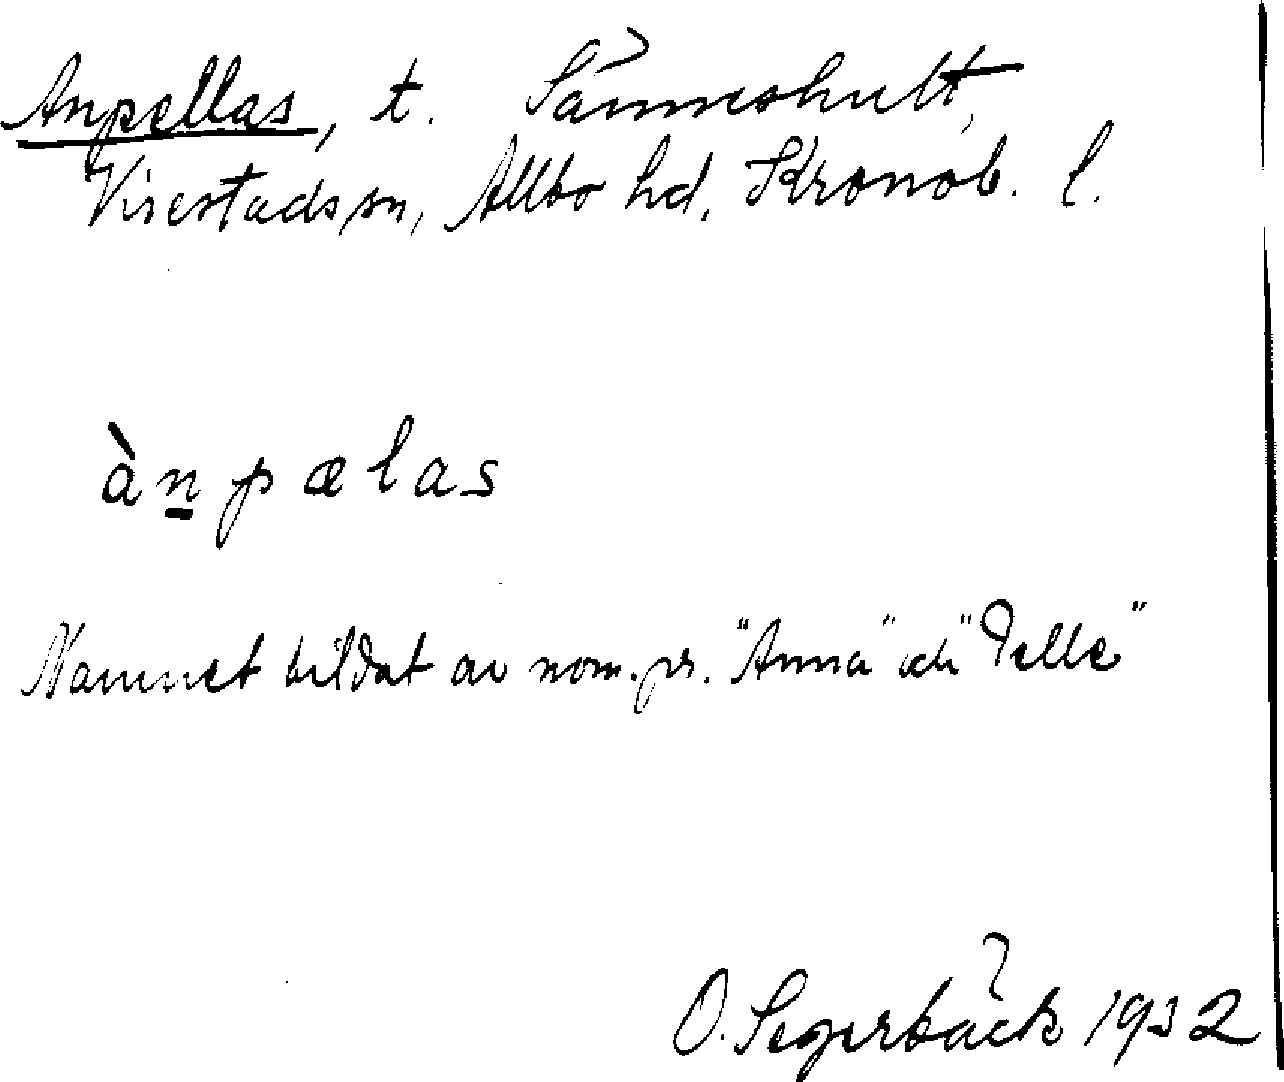 Anpellas, t. Sänneshult,
Virestads sn, Allbo hd, Kronob. l.
ànpælas
Namnet bildat av nom. pr. "Anna" och "Pelle"
O. Segerbäck 1932